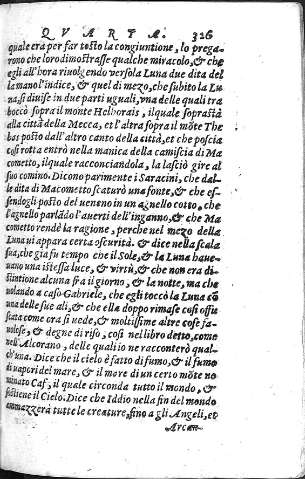 QVARTA. 326
quale era per far tosto la congiuntione, lo prega-
rono che loro dimostrasse qualche miracolo, & che
egli all'hora riuolgendo verso la Luna due dita del
la mano l'indice, & quel di mezo, che subito la Lu-
na, si diuise in due parti uguali, vna delle quali tra
boccò sopra il monte Helborais, il quale soprastà
alla città della Mecca, et l'altra sopra il mōte The
bas posto dall'altro canto della città, et che poscia
così rotta entrò nella manica della camiscia di Ma
cometto, il quale racconciandola, la lasciò gire al
suo comino. Dicono parimente i Saracini, che dal-
le dita di Macometto scaturò una fonte, & che es-
sendogli posto del ueneno in un agnello cotto, che
l'agnello parlādo l'auertì dell'inganno, & che Ma
cometto rendè la ragione, perche nel mezo della
Luna ui appara certa oscurità. & dice nella scala
sua, che già fu tempo che il Sole, & la Luna haue-
uano una istessa luce, & virtù, & che non era di-
stintione alcuna fra il giorno, & la notte, ma che
uolando a caso Gabriele, che egli toccò la Luna cō
una delle sue ali, & che ella doppo rimase così offu
scata come ora si uede, & moltissime altre cose fa-
uolose, & degne di riso, così nel libro detto, come
nell'Alcorano, delle quali io ne racconterò qual-
ch'una. Dice che il cielo è fatto di fumo, & il fumo
di uapori del mare, & il mare di un certo mōte no
minato Caf, il quale circonda tutto il mondo, &
sostiene il Cielo. Dice che Iddio nella fin del mondo
ammazzerà tutte le creature, fino a gli Angeli, et
Arcan-